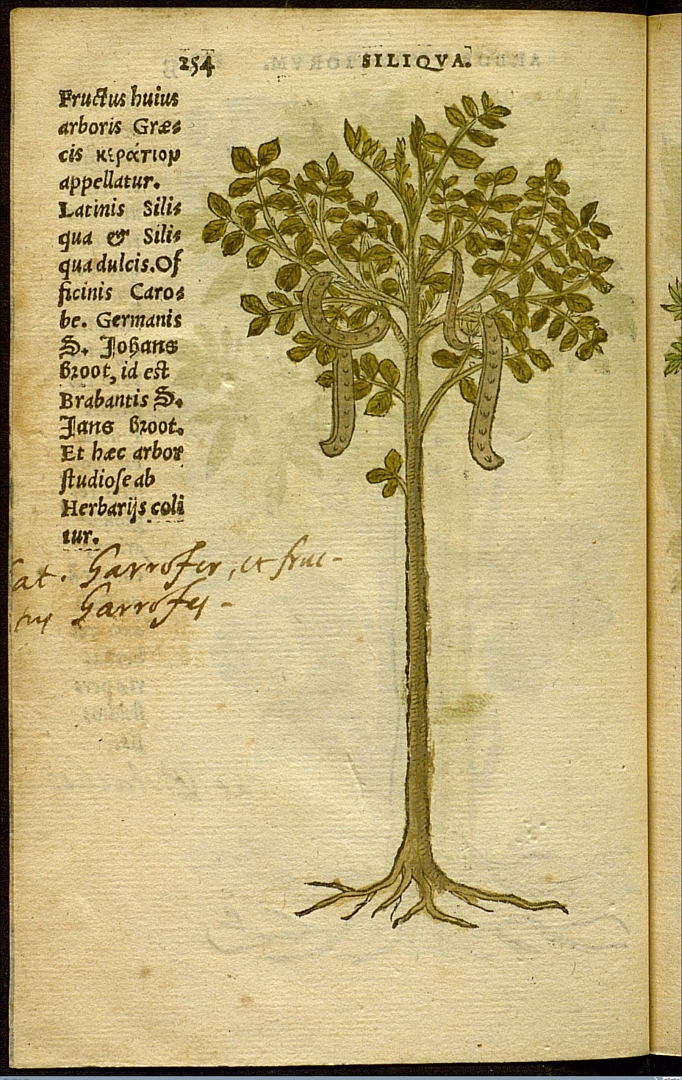 254 SILIQVA.
Fructus huius
arboris Græ⸗
cis κεράτιον
appellatur.
Latinis Sili⸗
qua & Sili⸗
qua dulcis. Of
ficinis Caro⸗
be. Germanis
S. Johans
broot, id est
Brabantis S.
Jans broot.
Et hæc arbor
studiose ab
Herbarijs coli
tur.
at. Garrofer, et fruc-
tus Garrofes -